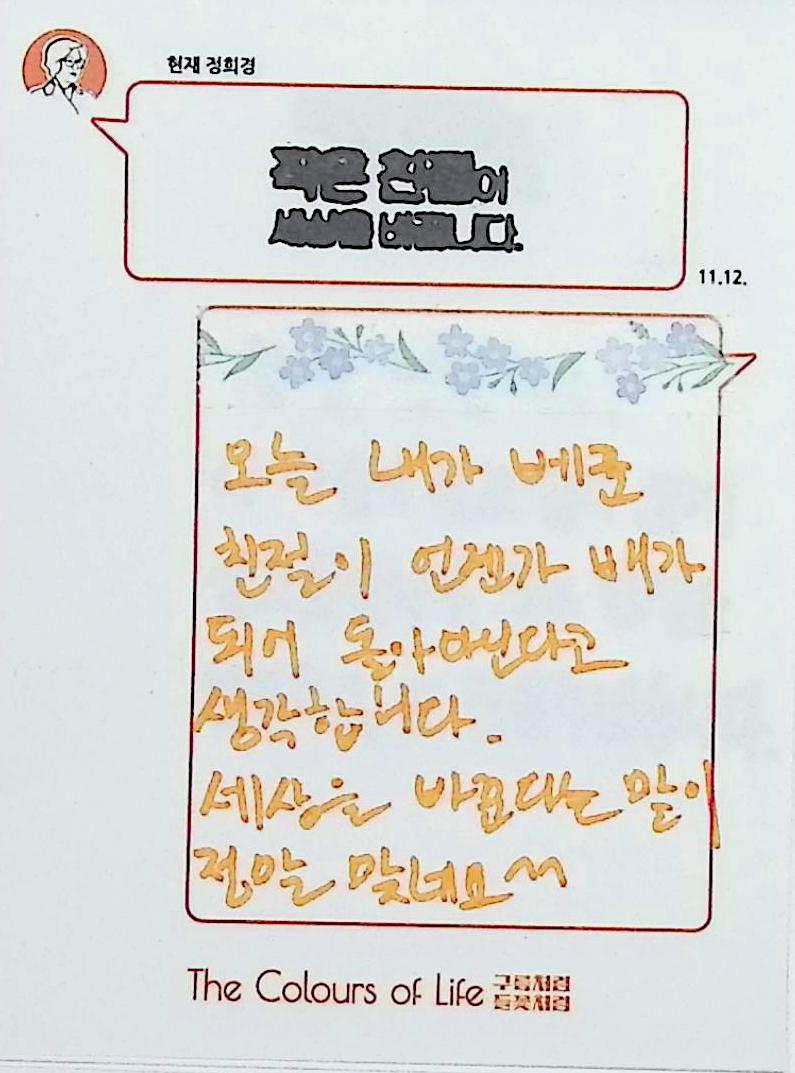 현재 정희경
작은 친절이
세상을 바꿉니다.
11.12.
오늘 내가 베푼
친절이 언젠가 배가
되어 돌아온다고
생각합니다.
세상을 바꾼다는 말이
정말 맞네요^^
The Colours of Life 구름처럼
들꽃처럼